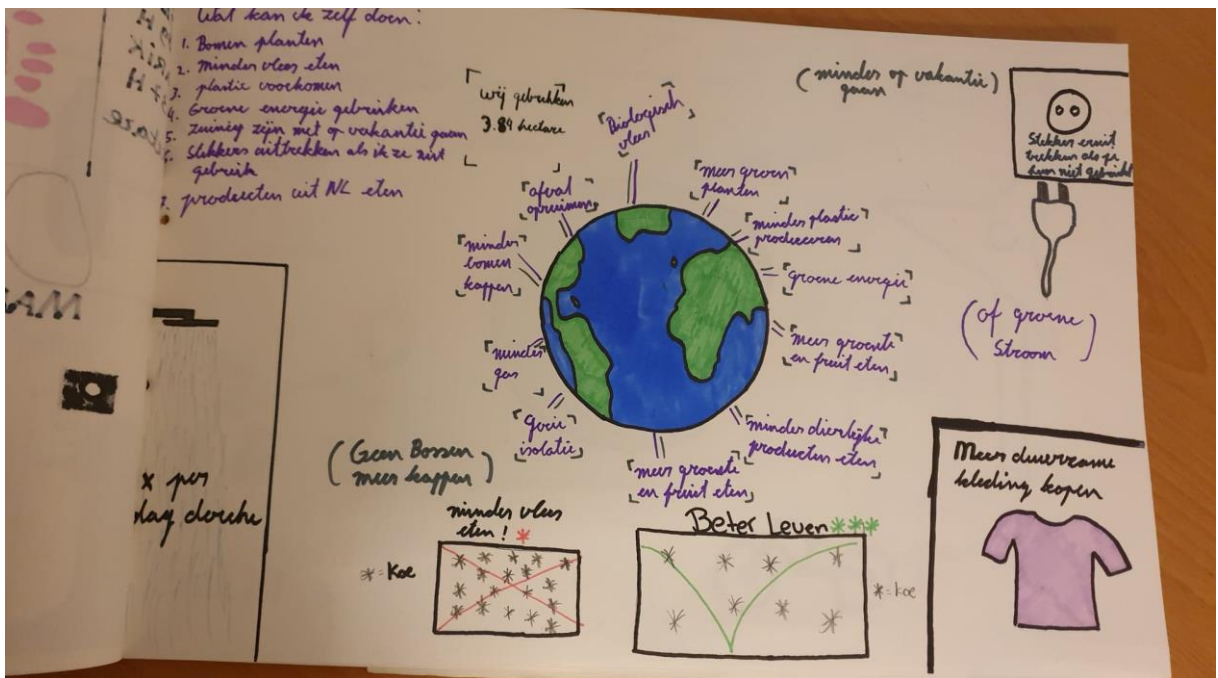 Wat kan ik zelf doen:
1. Bomen planten
2. minder vlees eten
3. plastic voorkomen
4. Groene energie gebruiken
5. zuinig zijn met op vakantie gaan
6. Stekkers uittrekken als ik ze niet
gebruik
7. producten uit NL eten
wij gebruiken
3.84 hectare
Biologisch
vlees
meer groen
planten
minder plastic
produceren
groene energie
meer groente
en fruit eten
minder dierlijke
producten eten
meer groente
en fruit eten
Goeie
isolatie
minder
gas
minder
bomen
kappen
afval
opruimen
(minder op vakantie)
gaan
Stekker eruit
trekken als je
hem niet gebruikt
(of groene)
Stroom
(Geen Bossen)
meer kappen
minder vlees
eten! *
*= Koe
Beter Leven ***
*= koe
Meer duurzame
kleding kopen
x per
dag douche